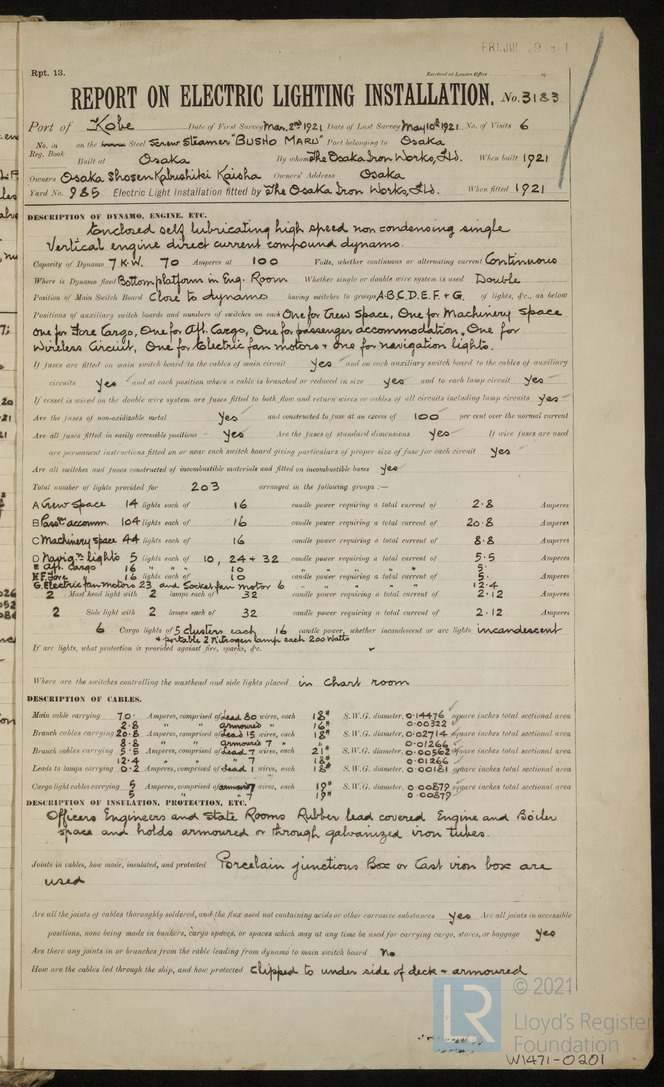 FRI.JUL
Rpt. 13.
Received at London Office
REPORT ON ELECTRIC LIGHTING INSTALLATION. No. 3183
Port of Kobe Date of First Survey Mar. 2nd 1921 Date of Last Survey May 10th 1921 No. of Visits 6
No. in Reg. Book on the Iron Steel Screw Steamer "BUSHO MARU" Port belonging to Osaka
Built at Osaka By whom The Osaka Iron Works, Ltd. When built 1921
Owners Osaka Shosen Kabushiki Kaisha Owners' Address Osaka
Yard No. 985 Electric Light Installation fitted by The Osaka Iron Works, Ltd. When fitted 1921
DESCRIPTION OF DYNAMO, ENGINE, ETC.
Enclosed self lubricating high speed non condensing single
Vertical engine direct current compound dynamo.
Capacity of Dynamo 7 K.W. 70 Amperes at 100 Volts, whether continuous or alternating current Continuous
Where is Dynamo fixed Bottom platform in Eng. Room Whether single or double wire system is used Double
Position of Main Switch Board Close to dynamo having switches to groups A.B.C.D.E.F. + G. of lights, &c., as below
Positions of auxiliary switch boards and numbers of switches on each One for Crew Space, One for Machinery Space
One for Fore Cargo, One for Aft. Cargo, One for passenger accommodation, One for
Wireless Circuit, One for Electric fan motors + one for navigation lights.
If fuses are fitted on main switch board to the cables of main circuit yes and on each auxiliary switch board to the cables of auxiliary
circuits yes and at each position where a cable is branched or reduced in size yes and to each lamp circuit yes
If vessel is wired on the double wire system are fuses fitted to both flow and return wires or cables of all circuits including lamp circuits yes
Are the fuses of non-oxidizable metal yes and constructed to fuse at an excess of 100 per cent over the normal current
Are all fuses fitted in easily accessible positions yes Are the fuses of standard dimensions yes If wire fuses are used
are permanent instructions fitted on or near each switch board giving particulars of proper size of fuse for each circuit yes
Are all switches and fuses constructed of incombustible materials and fitted on incombustible bases yes
Total number of lights provided for 203 arranged in the following groups :—
A Crew space 14 lights each of 16 candle power requiring a total current of 2.8 Amperes
B Passr accomm. 104 lights each of 16 candle power requiring a total current of 20.8 Amperes
C Machinery space 44 lights each of 16 candle power requiring a total current of 8.8 Amperes
D Navign lights 5 lights each of 10, 24 + 32 candle power requiring a total current of 5.5 Amperes
E Aft. cargo 16 " " " 10 " " " " " 5.
F. Fore 16 lights each of 10 candle power requiring a total current of 5. Amperes
G. Electric fan motors 23 and Socket fan motor 6 " " " " 12.4
2 Mast head light with 2 lamps each of 32 candle power requiring a total current of 2.12 Amperes
2 Side light with 2 lamps each of 32 candle power requiring a total current of 2.12 Amperes
6 Cargo lights of 5 clusters each 16 candle power, whether incandescent or arc lights incandescent
+ portable 2 Nitrogen lamp each 200 Watts
If arc lights, what protection is provided against fire, sparks, &c.
Where are the switches controlling the masthead and side lights placed in chart room
DESCRIPTION OF CABLES.
Main cable carrying 70. Amperes, comprised of Lead 30 wires, each 18# S.W.G. diameter, 0.14476 square inches total sectional area
2.8 " armoured " 16# 0.00322
Branch cables carrying 20.8 Amperes, comprised of Lead 15 wires, each 18# S.W.G. diameter, 0.02714 square inches total sectional area
8.8 " " armoured 7 " " 0.01266
Branch cables carrying 5.5 Amperes, comprised of Lead 7 wires, each 21# S.W.G. diameter, 0.00562 square inches total sectional area
12.4 " " " 7 18# 0.01266
Leads to lamps carrying 0.2 Amperes, comprised of Lead 1 wires, each 18# S.W.G. diameter, 0.00181 square inches total sectional area
Cargo light cables carrying 5 Amperes, comprised of armoured 7 wires, each 19# S.W.G. diameter, 0.00879 square inches total sectional area
5 " " 7 19# 0.00879
DESCRIPTION OF INSULATION, PROTECTION, ETC.
Officers Engineers and State Rooms Rubber lead covered Engine and Boiler
space and holds armoured or through galvanized iron tubes.
Joints in cables, how made, insulated, and protected Porcelain junctions Box or Cast iron box are
used
Are all the joints of cables thoroughly soldered, and the flux used not containing acids or other corrosive substances yes Are all joints in accessible
positions, none being made in bunkers, cargo spaces, or spaces which may at any time be used for carrying cargo, stores, or baggage yes
Are there any joints in or branches from the cable leading from dynamo to main switch board No
How are the cables led through the ship, and how protected Clipped to under side of deck + armoured
LR
© 2021
Lloyd's Register
Foundation
W1471-0201